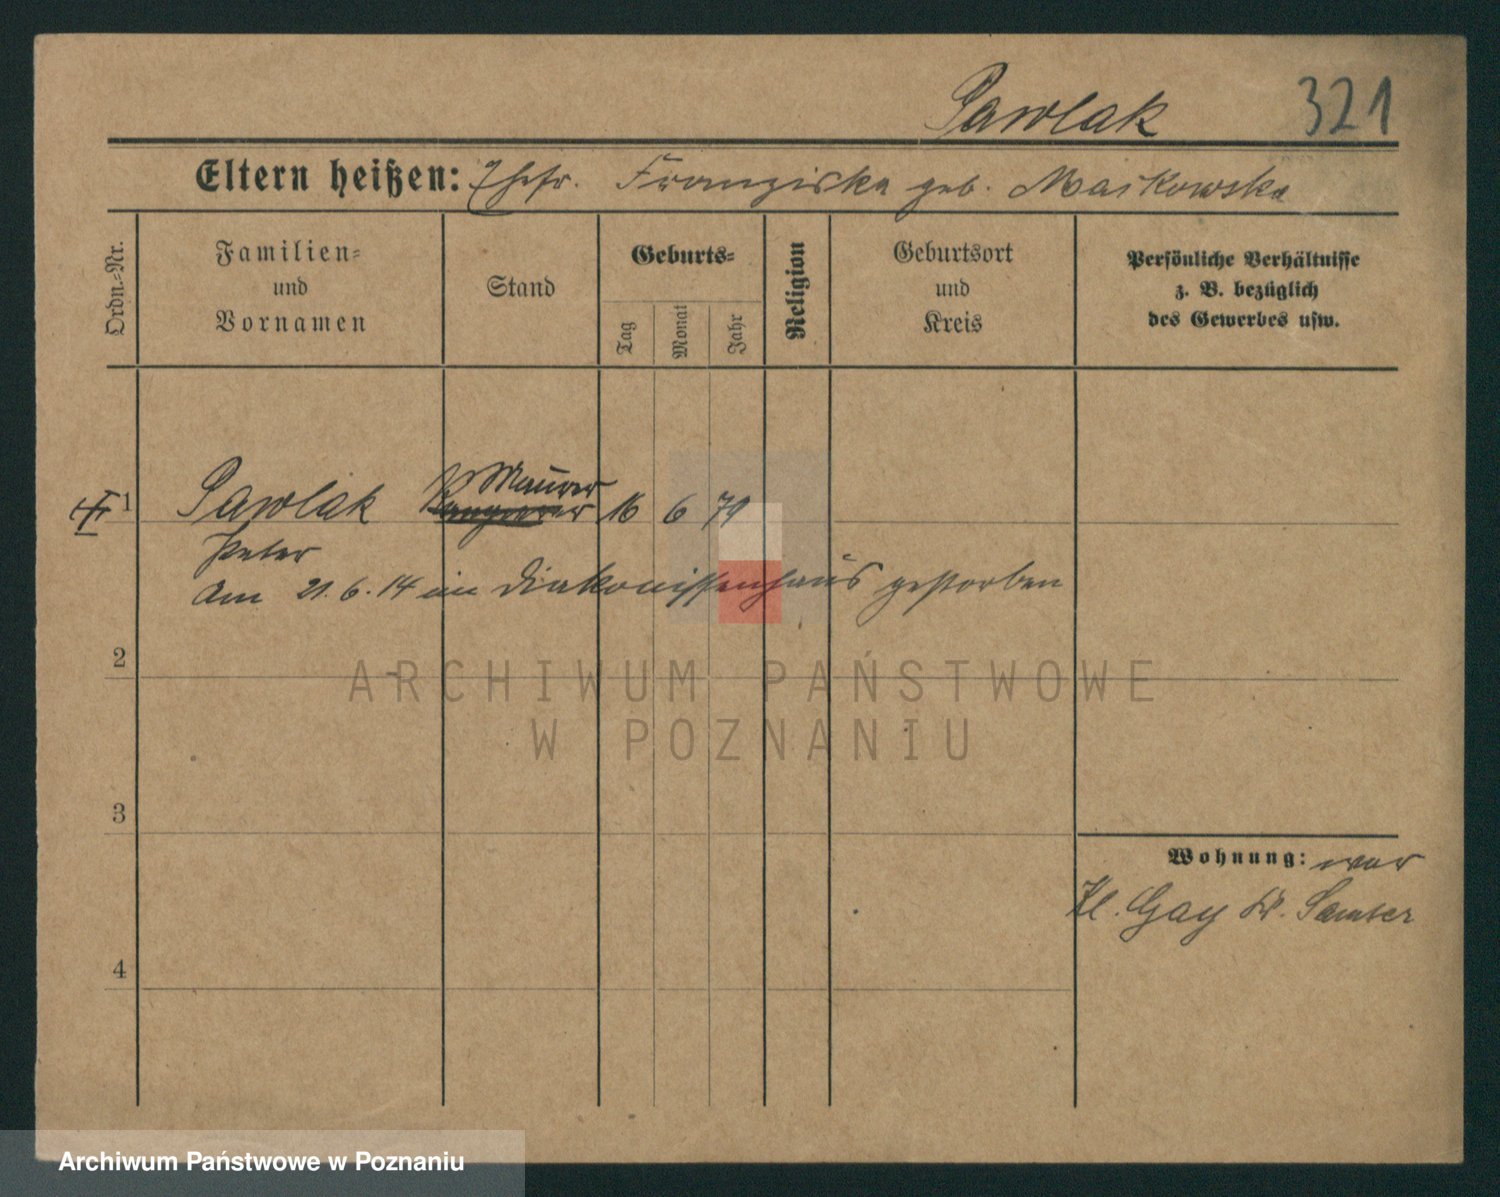 Pawlak 321
Eltern heißen: Ehefr. Franziska geb. Maikowska
Ordn.-Nr.
Familien-
und
Vornamen
Stand
Geburts-
Tag
Monat
Jahr
Religion
Geburtsort
und
Kreis
Persönliche Verhältnisse
z. B. bezüglich
des Gewerbes usw.
Maurer
1 Pawlak 16 6 79
Peter
am 21.6.14 im Diakonissenhaus gestorben
2
ARCHIWUM PAŃSTWOWE
W POZNANIU
3
Wohnung: war
Kl. Gay Kr. Samter
4
Archiwum Państwowe w Poznaniu